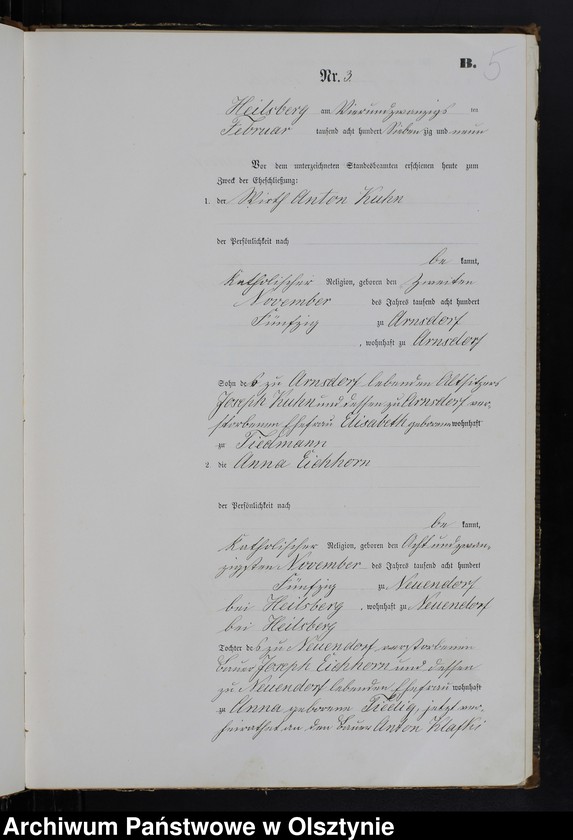 B.
5
Nr. 3.
Heilsberg am Vierundzwanzigs ten
Februar tausend acht hundert Sieben zig und neun
Vor dem unterzeichneten Standesbeamten erschienen heute zum
Zweck der Eheschließung:
1. der Wirth Anton Kuhn
der Persönlichkeit nach
be kannt,
Katholischer Religion, geboren den Zweiten
November des Jahres tausend acht hundert
Fünfzig zu Arnsdorf
, wohnhaft zu Arnsdorf
Sohn des zu Arnsdorf lebenden Altsitzers
Joseph Kuhn und dessen zu Arnsdorf ver-
storbenen Ehefrau Elisabeth geborene wohnhaft
zu Tiedmann
2. die Anna Eichhorn
der Persönlichkeit nach
be kannt,
Katholischer Religion, geboren den Acht und zwan-
zigsten November des Jahres tausend acht hundert
Fünfzig zu Neuendorf
bei Heilsberg , wohnhaft zu Neuendorf
bei Heilsberg
Tochter des zu Neuendorf verstorbenen
Bauer Joseph Eichhorn und dessen
zu Neuendorf lebenden Ehefrau wohnhaft
zu Anna geborene Tiedig, jetzt ver-
heirathet an den Bauer Anton Klafki
Archiwum Państwowe w Olsztynie